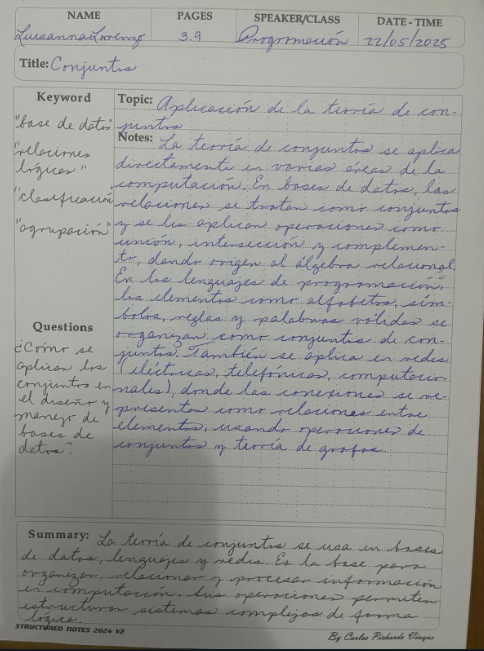 NAME PAGES SPEAKER/CLASS DATE - TIME
Luisanna Lorenzo 3.9 Programación 22/05/2025
Title: Conjuntos
Keyword
"base de datos"
"relaciones
lógicas"
"clasificación"
"agrupación"
Questions
¿Cómo se
aplican los
conjuntos en
el diseño y
manejo de
bases de
datos?
Topic: Aplicación de la teoría de con-
juntos
Notes: La teoría de conjuntos se aplica
directamente en varias áreas de la
computación. En bases de datos, las
relaciones se tratan como conjuntos
y se les aplican operaciones como
unión, intersección y complemen-
to, dando origen al álgebra relacional.
En los lenguajes de programación,
los elementos como alfabetos, sím-
bolos, reglas y palabras válidas se
organizan como conjuntos de con-
juntos. También se aplica en redes
(eléctricas, telefónicas, computacio-
nales), donde las conexiones se re-
presentan como relaciones entre
elementos, usando operaciones de
conjuntos y teoría de grafos.
Summary: La teoría de conjuntos se usa en bases
de datos, lenguajes y redes. Es la base para
organizar, relacionar y procesar información
en computación. Sus operaciones permiten
estructurar sistemas complejos de forma
lógica.
STRUCTURED NOTES 2024 V2 By Carlos Pichardo Vinque